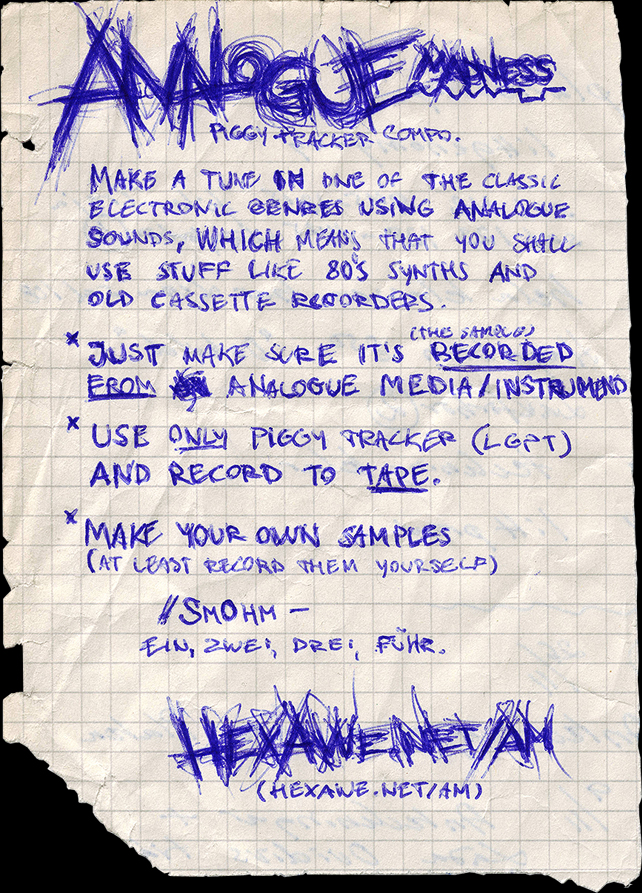 ANALOGUE MADNESS
PIGGY TRACKER COMPO.
MAKE A TUNE IN ONE OF THE CLASSIC
ELECTRONIC GENRES USING ANALOGUE
SOUNDS, WHICH MEANS THAT YOU SHALL
USE STUFF LIKE 80'S SYNTHS AND
OLD CASSETTE RECORDERS.
(THE SAMPLES)
x JUST MAKE SURE IT'S RECORDED
FROM ANALOGUE MEDIA/INSTRUMEND
x USE ONLY PIGGY TRACKER (LGPT)
AND RECORD TO TAPE.
x MAKE YOUR OWN SAMPLES
(AT LEAST RECORD THEM YOURSELF)
//SMOHM –
EIN, ZWEI, DREI, FÜHR.
HEXAWE.NET/AM
(HEXAWE.NET/AM)